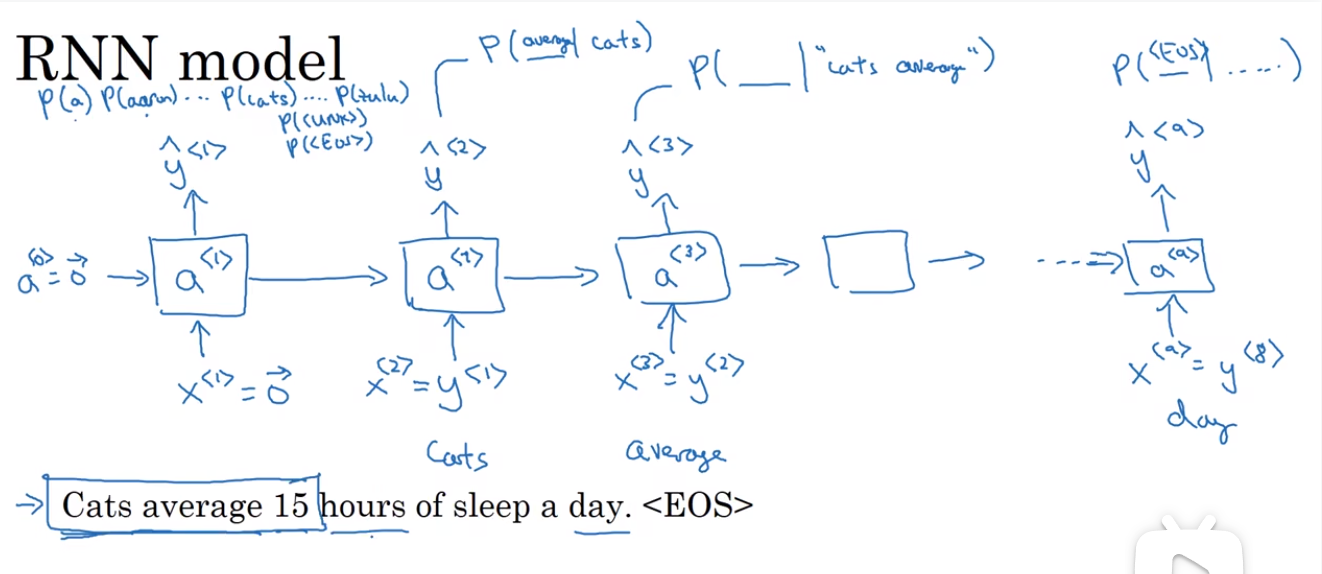 RNN model
P(a) P(aaron) ... P(cats) .... P(zulu)
P(<UNK>)
P(<EOS>)
P(average| cats)
P(__ | "cats average")
P(<EOS>| .....)
ŷ<1>
ŷ<2>
ŷ<3>
ŷ<9>
a<0> = 0⃗
a<1>
a<2>
a<3>
a<9>
x<1> = 0⃗
x<2> = y<1>
x<3> = y<2>
x<9> = y<8>
Cats
average
day
Cats average 15 hours of sleep a day. <EOS>